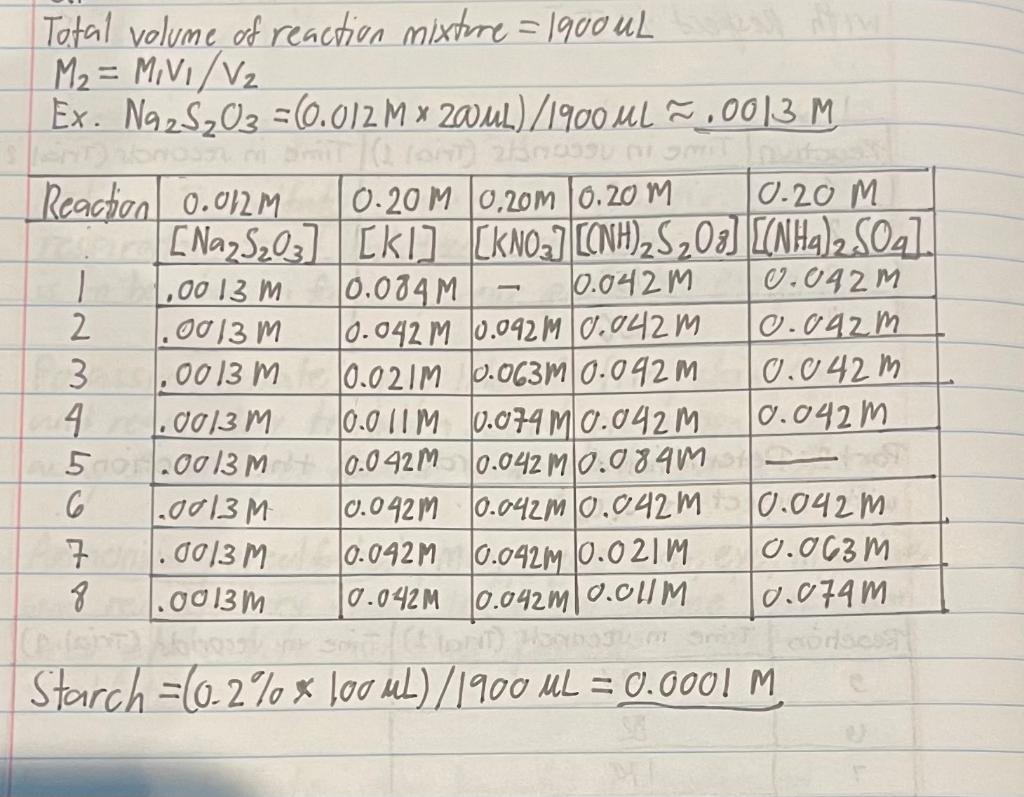 Total volume of reaction mixture = 1900 uL
M₂ = M₁V₁/V₂
Ex. Na₂S₂O₃ = (0.012 M × 200 uL)/1900 uL ≈ .0013 M
Reaction 0.012M 0.20 M 0.20M 0.20 M 0.20 M
[Na₂S₂O₃] [KI] [KNO₃] [(NH)₂S₂O8] [(NH4)₂SO4]
1 .0013 M 0.084M – 0.042M 0.042M
2 .0013 M 0.042M 0.042M 0.042M 0.042M
3 .0013 M 0.021M 0.063M 0.042M 0.042M
4 .0013M 0.011M 0.074M 0.042M 0.042M
5 .0013M 0.042M 0.042M 0.084M —
6 .0013M 0.042M 0.042M 0.042M 0.042M
7 .0013M 0.042M 0.042M 0.021M 0.063M
8 .0013M 0.042M 0.042M 0.011M 0.074M
Starch = (0.2% × 100 uL)/1900 uL = 0.0001 M